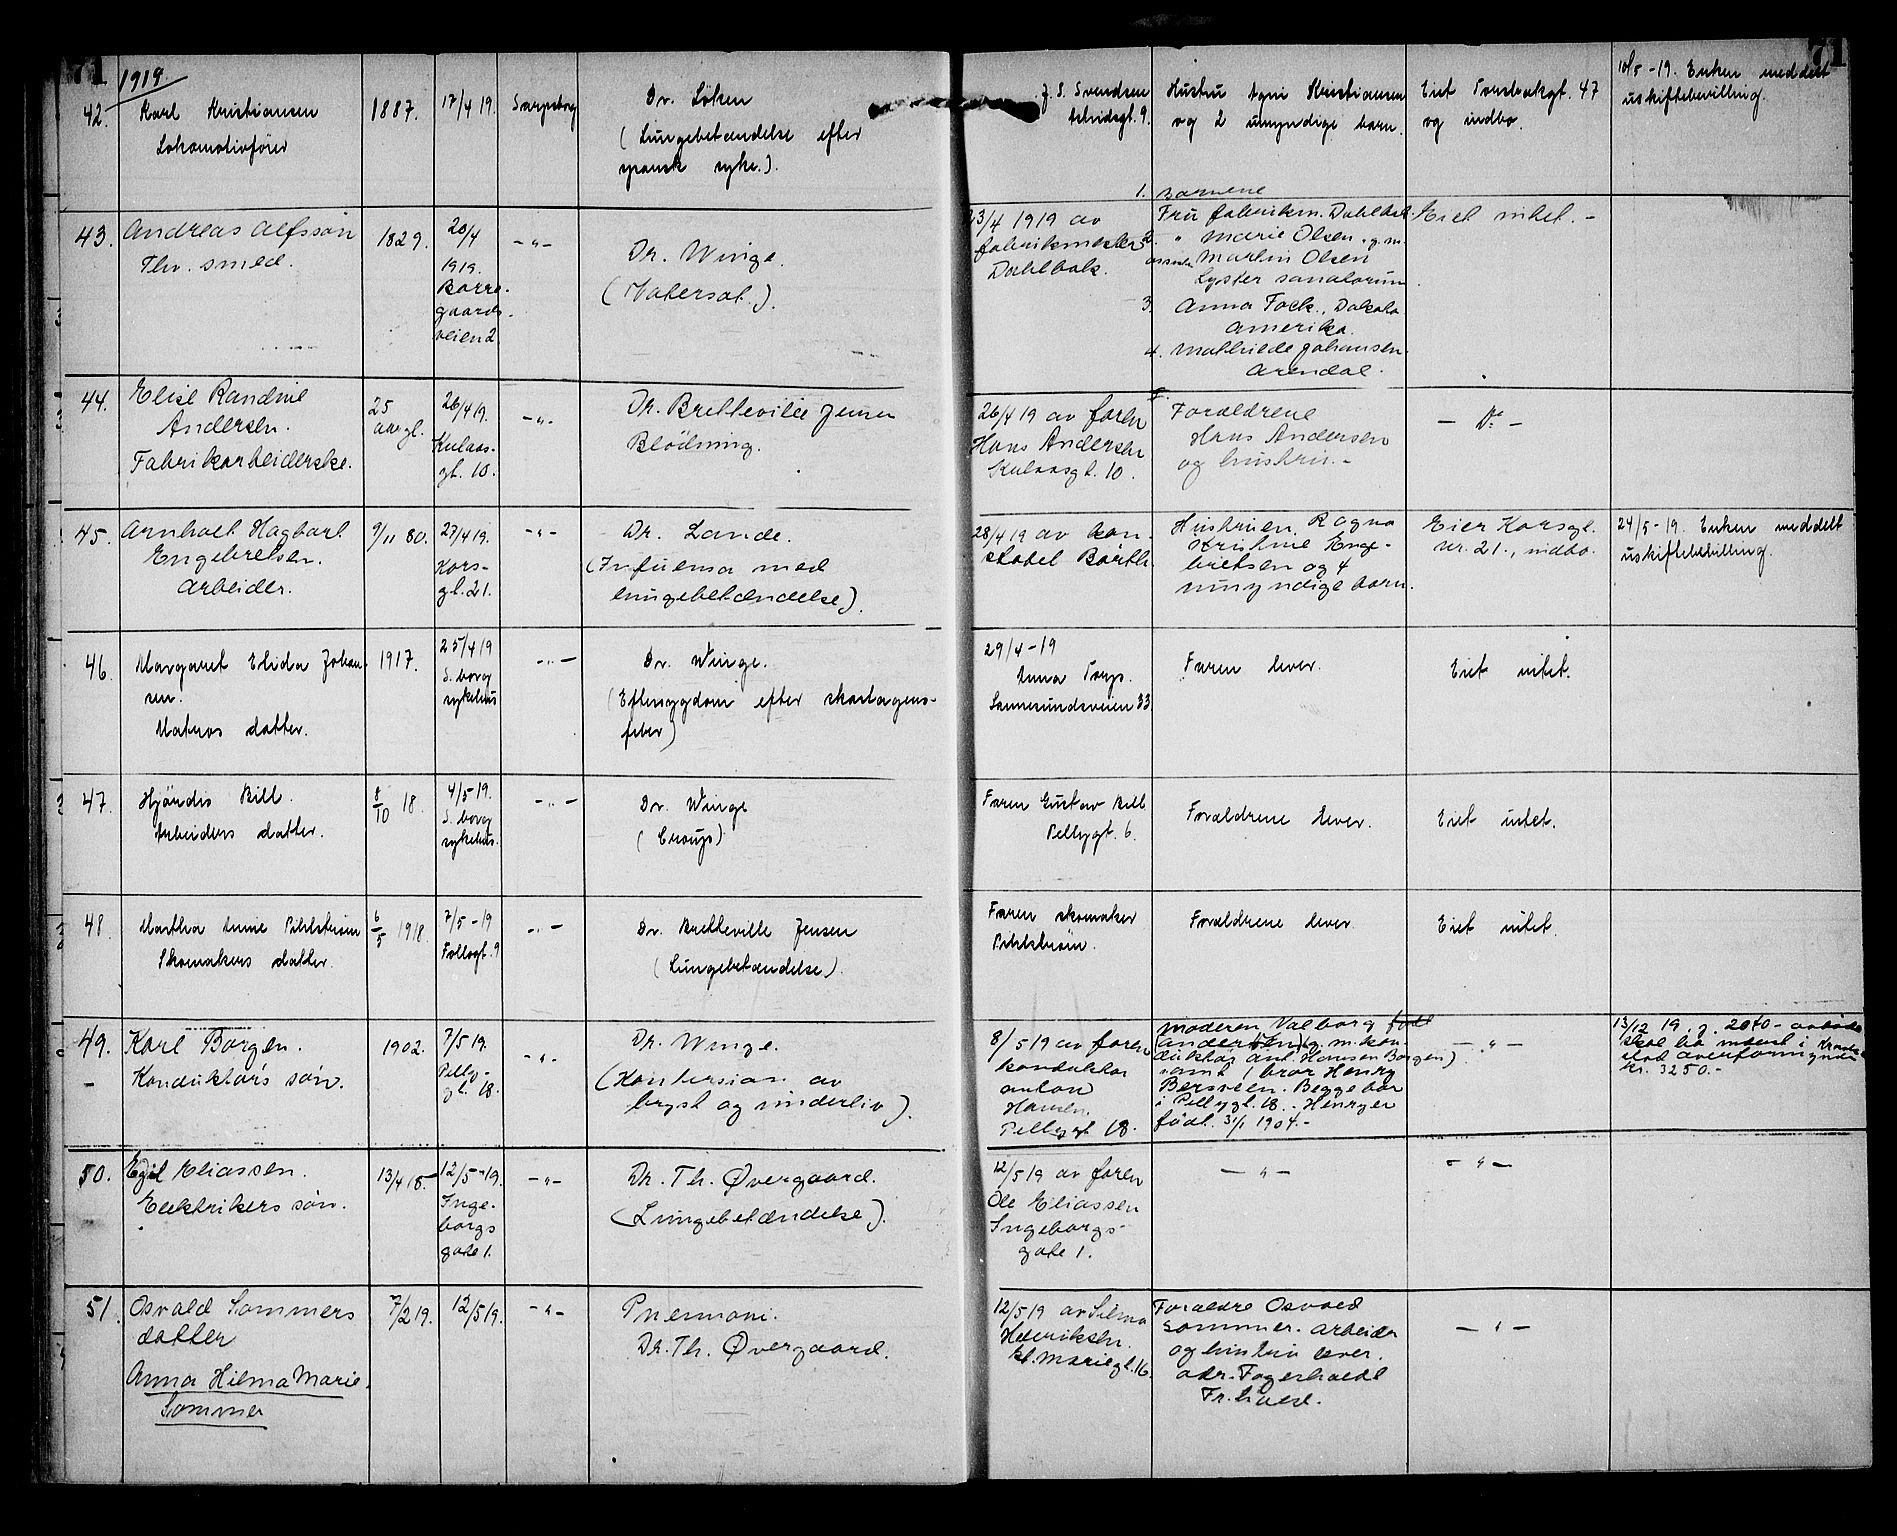 71
1919.
71
42.
Karl Kristiansen
Lokomotivfører
1887.
17/4 19.
Sarpsborg
Dr. Løken
(Lungebetændelse efter
spansk syke.).
J. S. Svendsen
9.
Hustru Agni Kristiansen
og 2 umyndige barn.
Eiet 47
og indbo.
10/5 -19. Enken meddelt
uskiftebevilling.
43.
Andreas Alfssøn
Thv. smed.
1829.
20/4
1919.
Borre-
gaards-
veien 2
- " -
Dr. Winge.
23/4 1919 av
fabrikmester
Dahlbak.
1. Barnene
Fru fabrikm. Dahlbak.
2. " Marie Olsen. g.m.
Martin Olsen
Lyster sanatorium
3. Anna Fock., Dakota
Amerika.
4. Mathilde Johansen.
Arendal.
Eiet intet. -
44.
Elise Randine
Andersen.
Fabrikarbeiderske.
25
aar gl.
26/4 19.
Kulaas-
gt. 10.
- " -
Dr. Bretteville Jensen
Blödning.
26/4 19 av faren
Hans Andersen
Kulaasgt. 10.
Forældrene
Hans Andersen
og hustru. -
- Do -
45.
Arnholt Hagbart
Engebretsen.
Arbeider.
9/11 80.
27/4 19.
Kors-
gt. 21.
- " -
Dr. Lande.
(Infuensa med
lungebetændelse).
28/4 19 av kon-
stabel
Hustruen Ragna
Kristine Enge-
bretsen og 4
umyndige barn.
Eier Korsgt.
nr. 21., indbo.
24/5 -19. Enken meddelt
uskiftebevilling.
46.
Margaret Elida Johan-
sen.
Matros datter.
1917.
25/4 19
S. borg
sykehus
- " -
Dr. Winge.
(Eftersygdom efter skarlagens-
feber)
29/4 -19
Anna
Sannesundsveien 33
Faren lever.
Eiet intet.
47.
Hjørdis Bill.
Arbeiders datter.
8/10 18.
4/5 -19.
S. borg
sykehus.
- " -
Dr. Winge
(Croup)
Faren Gustav Bill
Pellygt. 6.
Forældrene lever.
Eiet intet.
48.
Martha Anne Pihlstrøm
Skomakers datter.
6/5 1918.
7/5 -19
Follogt. 9
- " -
Dr. Bretteville Jensen
(Lungebetændelse).
Faren skomaker
Pihlstrøm.
Forældrene lever
Eiet intet.
49.
Karl Borgen.
Konduktørs søn.
1902.
7/5 19.
Pelly-
gt. 18.
- " -
Dr. Winge.
(Kontusion av
bryst og underliv).
8/5 19 av faren
konduktør
Anton
Hansen.
Pellygt 18.
Moderen Valborg født
(Andersen) g. m. kon-
duktør Ant. Hansen Borgen)
samt 1 bror Henry
Bersvein. Begge bor
i Pellygt. 18. - Henry er
født. 31/1 1904. -
- " -
13/12 19.
skal ha indsat i
stad overformynderi
kr. 3250. -
50.
Egil Eliassen.
Elektrikers søn.
13/4 18.
12/5 -19.
Inge-
borgs
gate 1.
- " -
Dr. Th. Øvergaard.
(Lungebetændelse).
12/5 19 av faren
Ole Eliassen
Ingeborgs-
gate 1.
- " -
- " -
51.
Osvald Sommers
datter
Anna Hilma Marie.
Sommer
7/2 19.
12/5 19.
- " -
Pnevmoni.
Dr. Th. Øvergaard.
12/5 19 av
Henriksen.
St. Mariegt. 16.
Forældre Osvald
Sommer. arbeider
og hustru lever.
adr. Fagerholdt
Fr. hald.
- " -